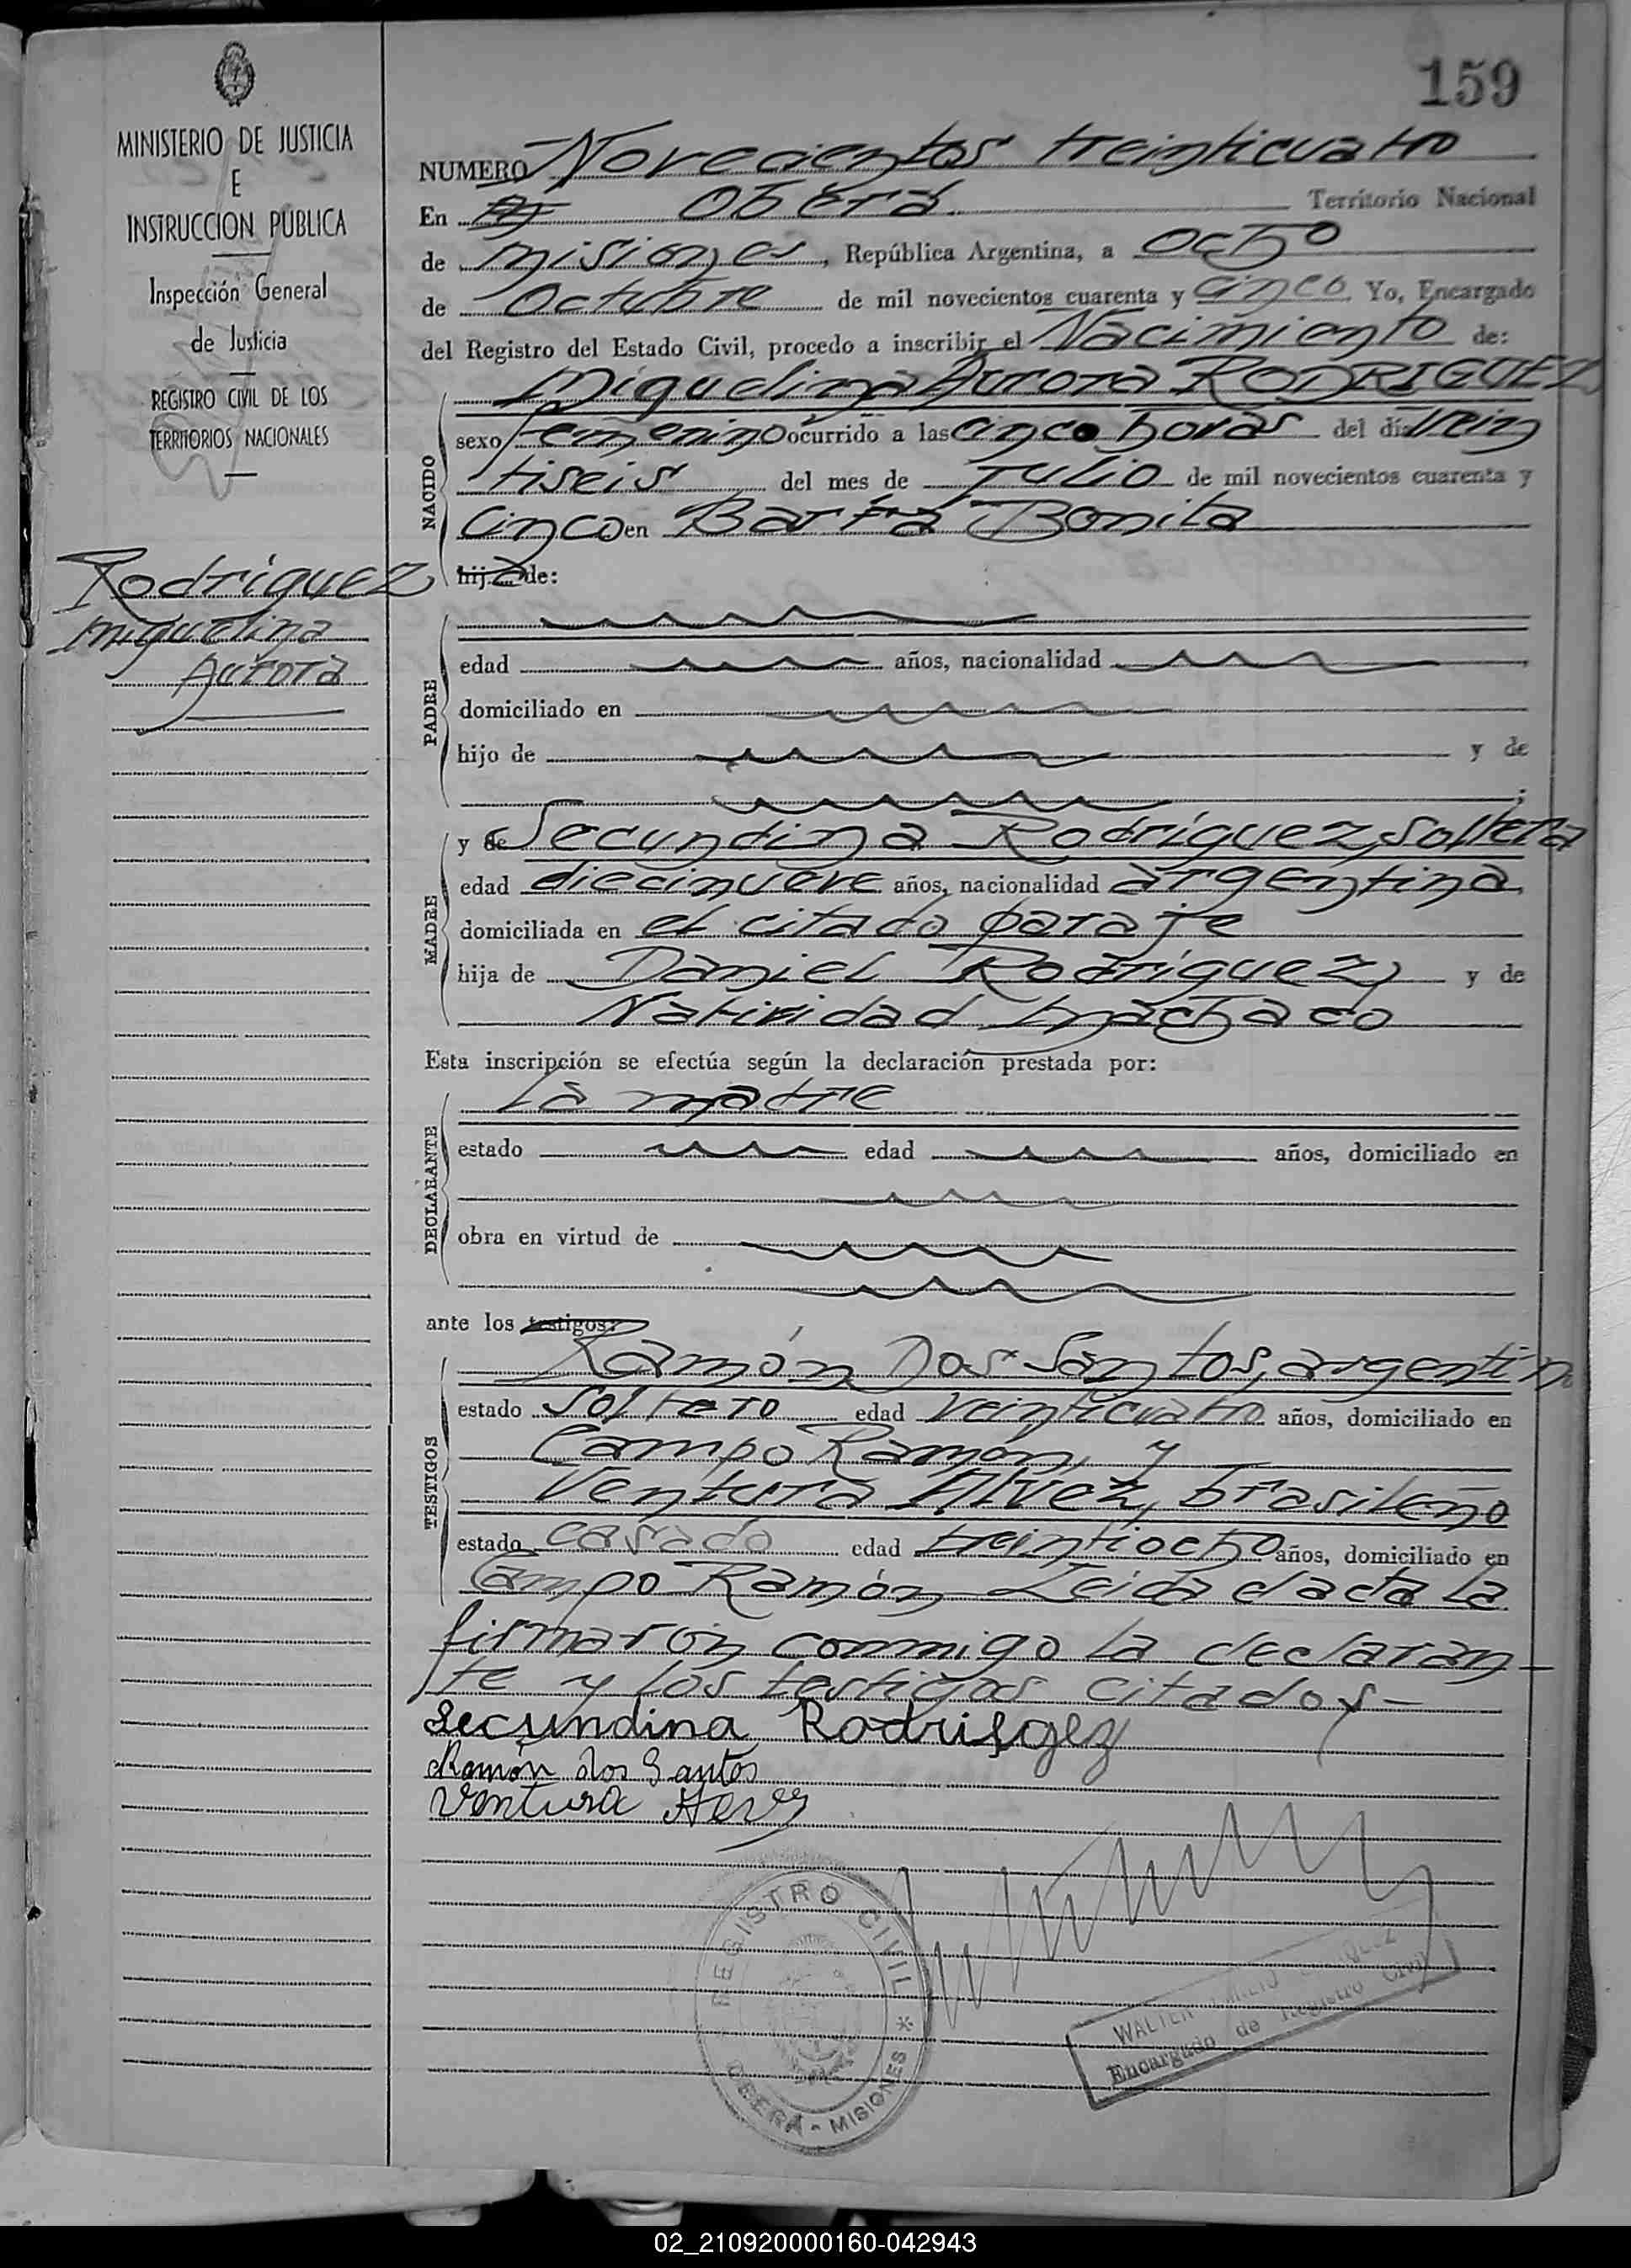 159
MINISTERIO DE JUSTICIA
E
INSTRUCCION PUBLICA
Inspección General
de Justicia
REGISTRO CIVIL DE LOS
TERRITORIOS NACIONALES
Rodriguez
Miguelina
Aurora
NUMERO Novecientos treinticuatro
En Oberá Territorio Nacional
de Misiones, República Argentina, a ocho
de Octubre de mil novecientos cuarenta y cinco Yo, Encargado
del Registro del Estado Civil, procedo a inscribir el Nacimiento de:
NACIDO
Miguelina Aurora RODRIGUEZ
sexo femenino ocurrido a las cinco horas del día vein
tiseis del mes de Julio de mil novecientos cuarenta y
cinco en Barra Bonita
hija de:
PADRE
edad años, nacionalidad
domiciliado en
hijo de y de
;
MADRE
y de Secundina Rodriguez, soltera
edad diecinueve años, nacionalidad argentina
domiciliada en el citado paraje
hija de Daniel Rodriguez y de
Natividad Machaco
Esta inscripción se efectúa según la declaración prestada por:
DECLARANTE
la madre
estado edad años, domiciliado en
obra en virtud de
ante los testigos:
TESTIGOS
Ramón Dos Santos, argentin
estado soltero edad veinticuatro años, domiciliado en
Campo Ramón, y
Ventura Alvez, brasileño
estado casado edad treintiocho años, domiciliado en
Campo Ramón Leida el acta la
firmaron conmigo la declaran-
te y los testigos citados-
Secundina Rodrisgez
Ramón dos Santos
Ventura
REGISTRO CIVIL *
OBERÁ - MISIONES
WALTER
Encargado de Registro Civil
02_210920000160-042943